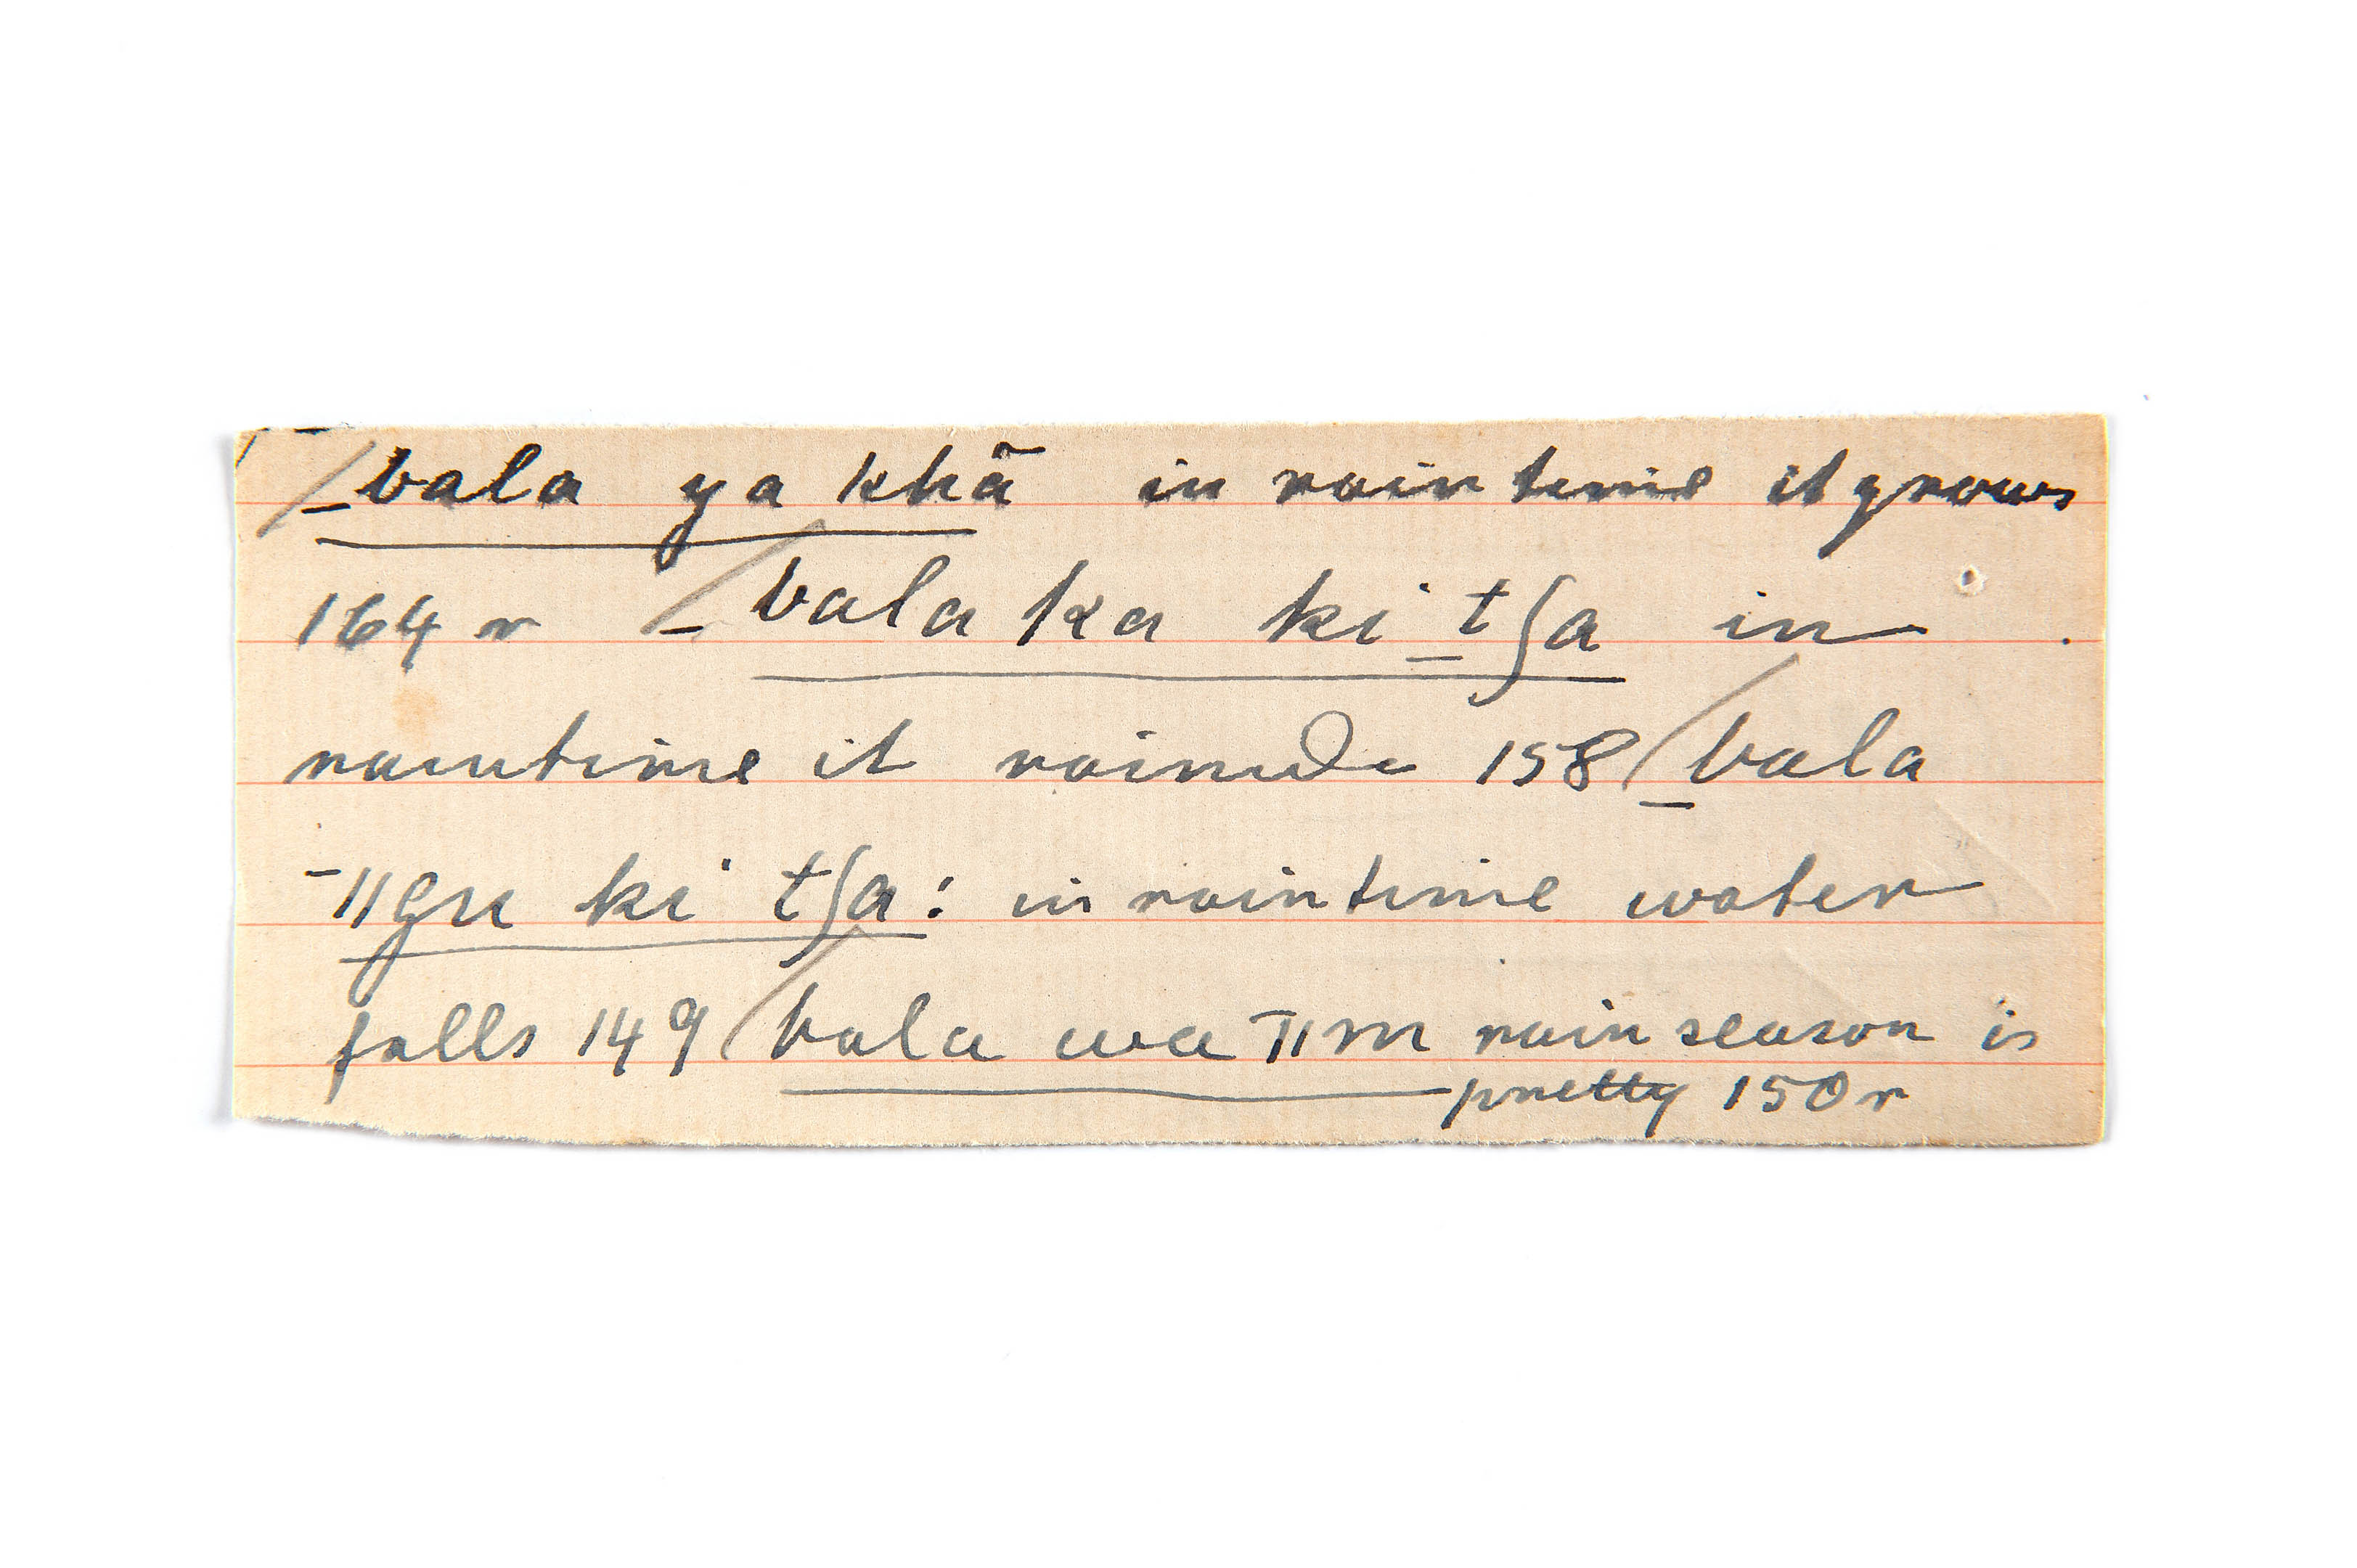 /_bala ya khā in raintime it grows
164 r /_bala ka ki _tʃa in
raintime it 158 /_bala
‾ǁgu ki tʃa: in raintime water
falls 149 /bala wa ‾ǁm rain season is
pretty 150 r